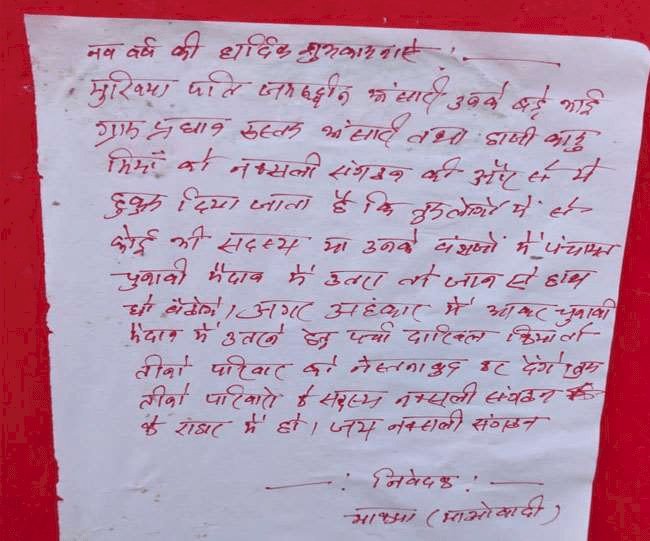 नव वर्ष की हार्दिक शुभकामनाऐं :
मुखिया पति जमरुद्दीन अंसारी उनके बड़े भाई
ग्राम प्रधान रुस्तम अंसारी तथा हाजी कामु
मियाँ को नक्सली संगठन की ओर से ये
हुकुम दिया जाता है कि तुमलोगों में से
कोई भी सदस्य या उनके वंशजों में पंचायत
चुनावी मैदान में उतरा तो जान से हाथ
धो बैठोगे। अगर अहंकार में आकर चुनावी
मैदान में उतरने हेतु पर्चा दाखिल किया तो
तीनो परिवार को नेस्तनाबुद कर देंगे। तुम
तीनो परिवारो के सदस्य नक्सली संगठन
के राडार में हो। जय नक्सली संगठन
—: निवेदक :—
भाकपा (माओवादी)